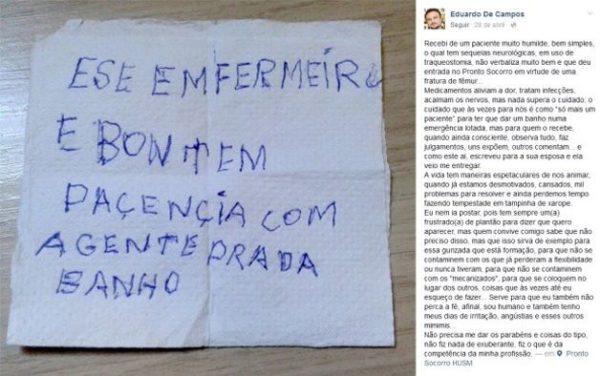 ESE EMFERMEIRO
E BON TEM
PAÇENÇIA COM
AGENTE PRADA
BANHO
Eduardo De Campos
Seguir · 29 de abril ·
Recebi de um paciente muito humilde, bem simples,
o qual tem sequelas neurológicas, em uso de
traqueostomia, não verbaliza muito bem e que deu
entrada no Pronto Socorro em virtude de uma
fratura de fêmur...
Medicamentos aliviam a dor, tratam infecções,
acalmam os nervos, mas nada supera o cuidado; o
cuidado que às vezes para nós é como "só mais um
paciente" para ter que dar um banho numa
emergência lotada, mas para quem o recebe,
quando ainda consciente, observa tudo, faz
julgamentos, uns expõem, outros comentam... e
como este aí, escreveu para a sua esposa e ela
veio me entregar.
A vida tem maneiras espetaculares de nos animar,
quando já estamos desmotivados, cansados, mil
problemas para resolver e ainda perdemos tempo
fazendo tempestade em tampinha de xarope.
Eu nem ia postar, pois tem sempre um(a)
frustrado(a) de plantão para dizer que quero
aparecer, mas quem convive comigo sabe que não
preciso disso, mas que isso sirva de exemplo para
essa gurizada que está formação, para que não se
contaminem com os que já perderam a flexibilidade
ou nunca tiveram, para que não se contaminem
com os "mecanizados", para que se coloquem no
lugar dos outros, coisas que às vezes até eu
esqueço de fazer... Serve para que eu também não
perca a fé, afinal, sou humano e também tenho
meus dias de irritação, angústias e esses outros
mimimis.
Não precisa me dar os parabéns e coisas do tipo,
não fiz nada de exuberante, fiz o que é da
competência da minha profissão. — em Pronto
Socorro HUSM